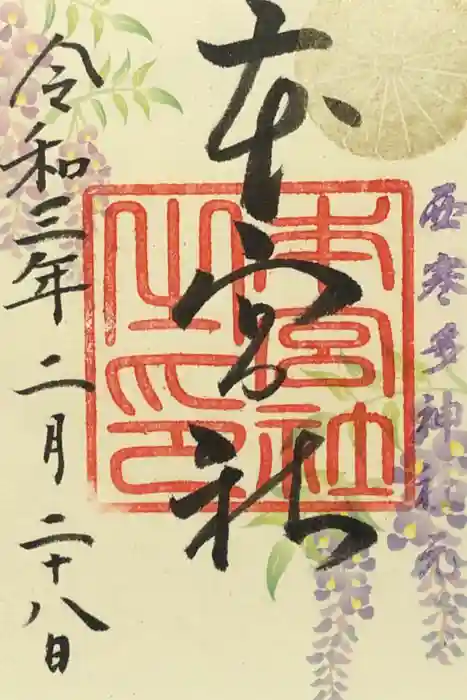 西寒多神社元宮
本宮社
本宮社之印
令和三年二月二十八日